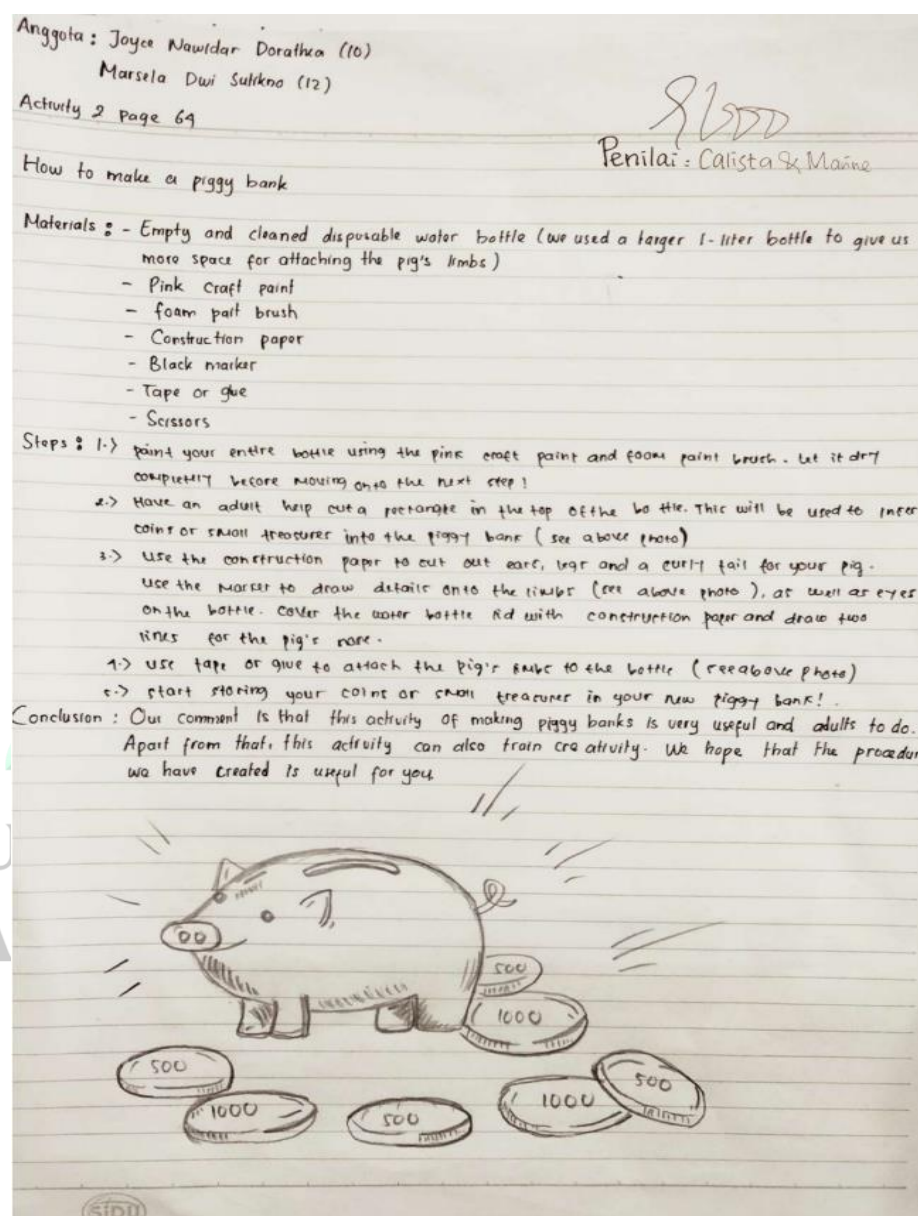 Anggota : Joyce Nawidar Dorathea (10)
Marsela Dwi Sulikno (12)
Activity 2 Page 64
Penilai : Calista & Marine
How to make a piggy bank
Materials : - Empty and cleaned disposable water bottle (we used a larger 1-liter bottle to give us
more space for attaching the pig's limbs)
- Pink craft paint
- foam part brush
- Construction paper
- Black marker
- Tape or glue
- Scissors
Steps : 1.> paint your entire bottle using the pink craft paint and foam paint brush. Let it dry
completely before moving onto the next step!
2.> Have an adult help cut a rectangle in the top of the bottle. This will be used to inser
coins or small treasures into the piggy bank (see above photo)
3.> Use the construction paper to cut out ears, legs and a curly tail for your pig.
Use the marker to draw details onto the limbs (see above photo), as well as eyes
on the bottle. Cover the water bottle lid with construction paper and draw two
lines for the pig's nose.
4.> Use tape or glue to attach the pig's limbs to the bottle (see above photo)
5.> start storing your coins or small treasures in your new piggy bank!.
Conclusion : Our comment is that this activity of making piggy banks is very useful and adults to do.
Apart from that, this activity can also train creativity. We hope that the procedur
we have created is useful for you
500
1000
500
1000
500
1000
500
SIDU